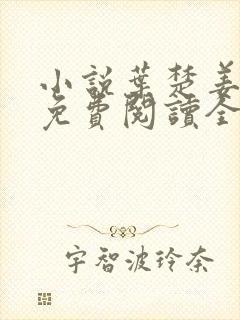 小說葉楚姜
免費閱讀全
宇智波玲奈